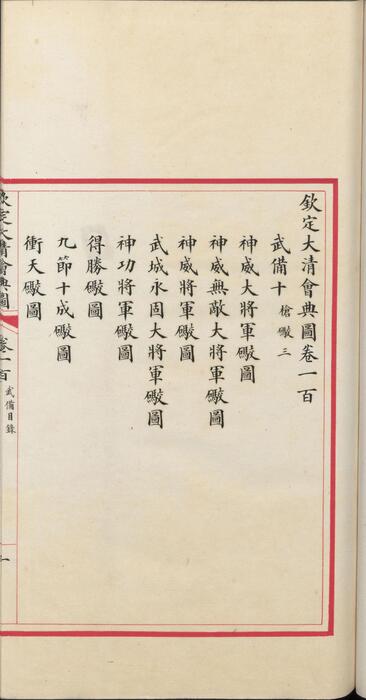 欽定大清會典圖卷一百
武備十 槍礮三
神威大將軍礮圖
神威無敵大將軍礮圖
神威將軍礮圖
武城永固大將軍礮圖
神功將軍礮圖
得勝礮圖
九節十成礮圖
衝天礮圖
欽定大清會典圖 卷一百 武備目錄 一